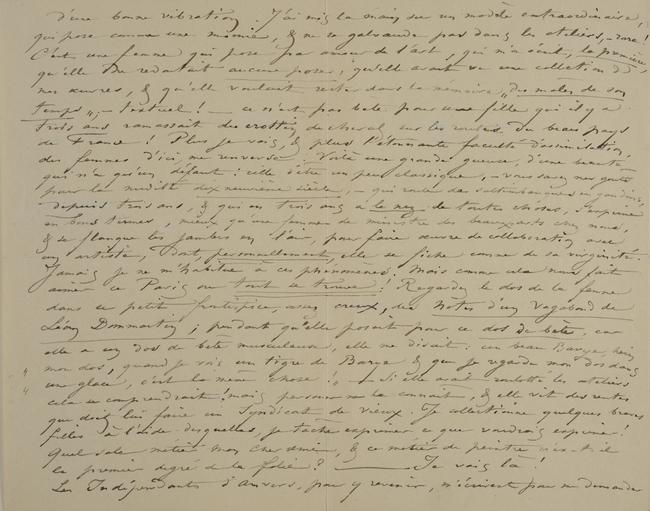 d'une bonne vibration. J'ai mis la main sur un modèle extraordinaire,
qui pose comme une momie, & ne se galvaude pas dans les ateliers, – rare!
C'est une femme qui pose par amour de l'art, qui m'a écrit, la première,
qu'elle ne redoutait aucune pose; qu'elle avait vu une collection de
mes œuvres, & qu'elle voulait rester dans la mémoire „des mâles de son
temps", – textuel! – ce n'est pas bête pour une fille qui il y a
trois ans ramassait des crottins de cheval sur les routes du beau pays
de France! Plus je vais, & plus l'étonnante faculté d'assimilation,
des femmes d'ici, me renverse. Voilà une grande gueuse, d'une beauté
qui n'a qu'un défaut: celle d'être un peu classique, – vous savez mes goûts
pour la nudité dix neuvième siècle, – qui roule des saltimbanques en
depuis trois ans, & qui en trois ans a le nez de toutes choses, s'exprime
en bons termes, mieux qu'une femme de ministre des beaux-arts chez nous,
& se flanque les jambes en l'air, pour faire œuvre de collaboration avec
un artiste, dont personnellement, elle se fiche comme de sa virginité.
Jamais je ne m'habitue à ces phénomènes. Mais comme cela nous fait
aimer ce Paris où tout se trouve! Regardez le dos de la femme
dans ce petit frontispice, assez creux, des Notes d'un Vagabond de
Léon Dommartin; pendant qu'elle posait pour ce dos de bête, car
elle a un dos de bête musculeuse, elle me disait: un beau Barye, hein
„mon dos, quand je vois un tigre de Barye & que je regarde mon dos dans
„une glace, c'est la même chose!" – Si elle avait roulotté les ateliers
cela se comprendrait, mais personne ne la connait, & elle vit des rentes
que doit lui faire un Syndicat de vieux. Je collectionne quelques braves
filles à l'aide desquelles, je tâche exprimer ce que voudrais exprimer!
Quel sale métier mon cher ami, & ce métier de peintre n'est-il
le premier degré de la folie? ——— Je vais là!
Les Indépendants d'Anvers, pour y revenir, m'écrivent pour me demander